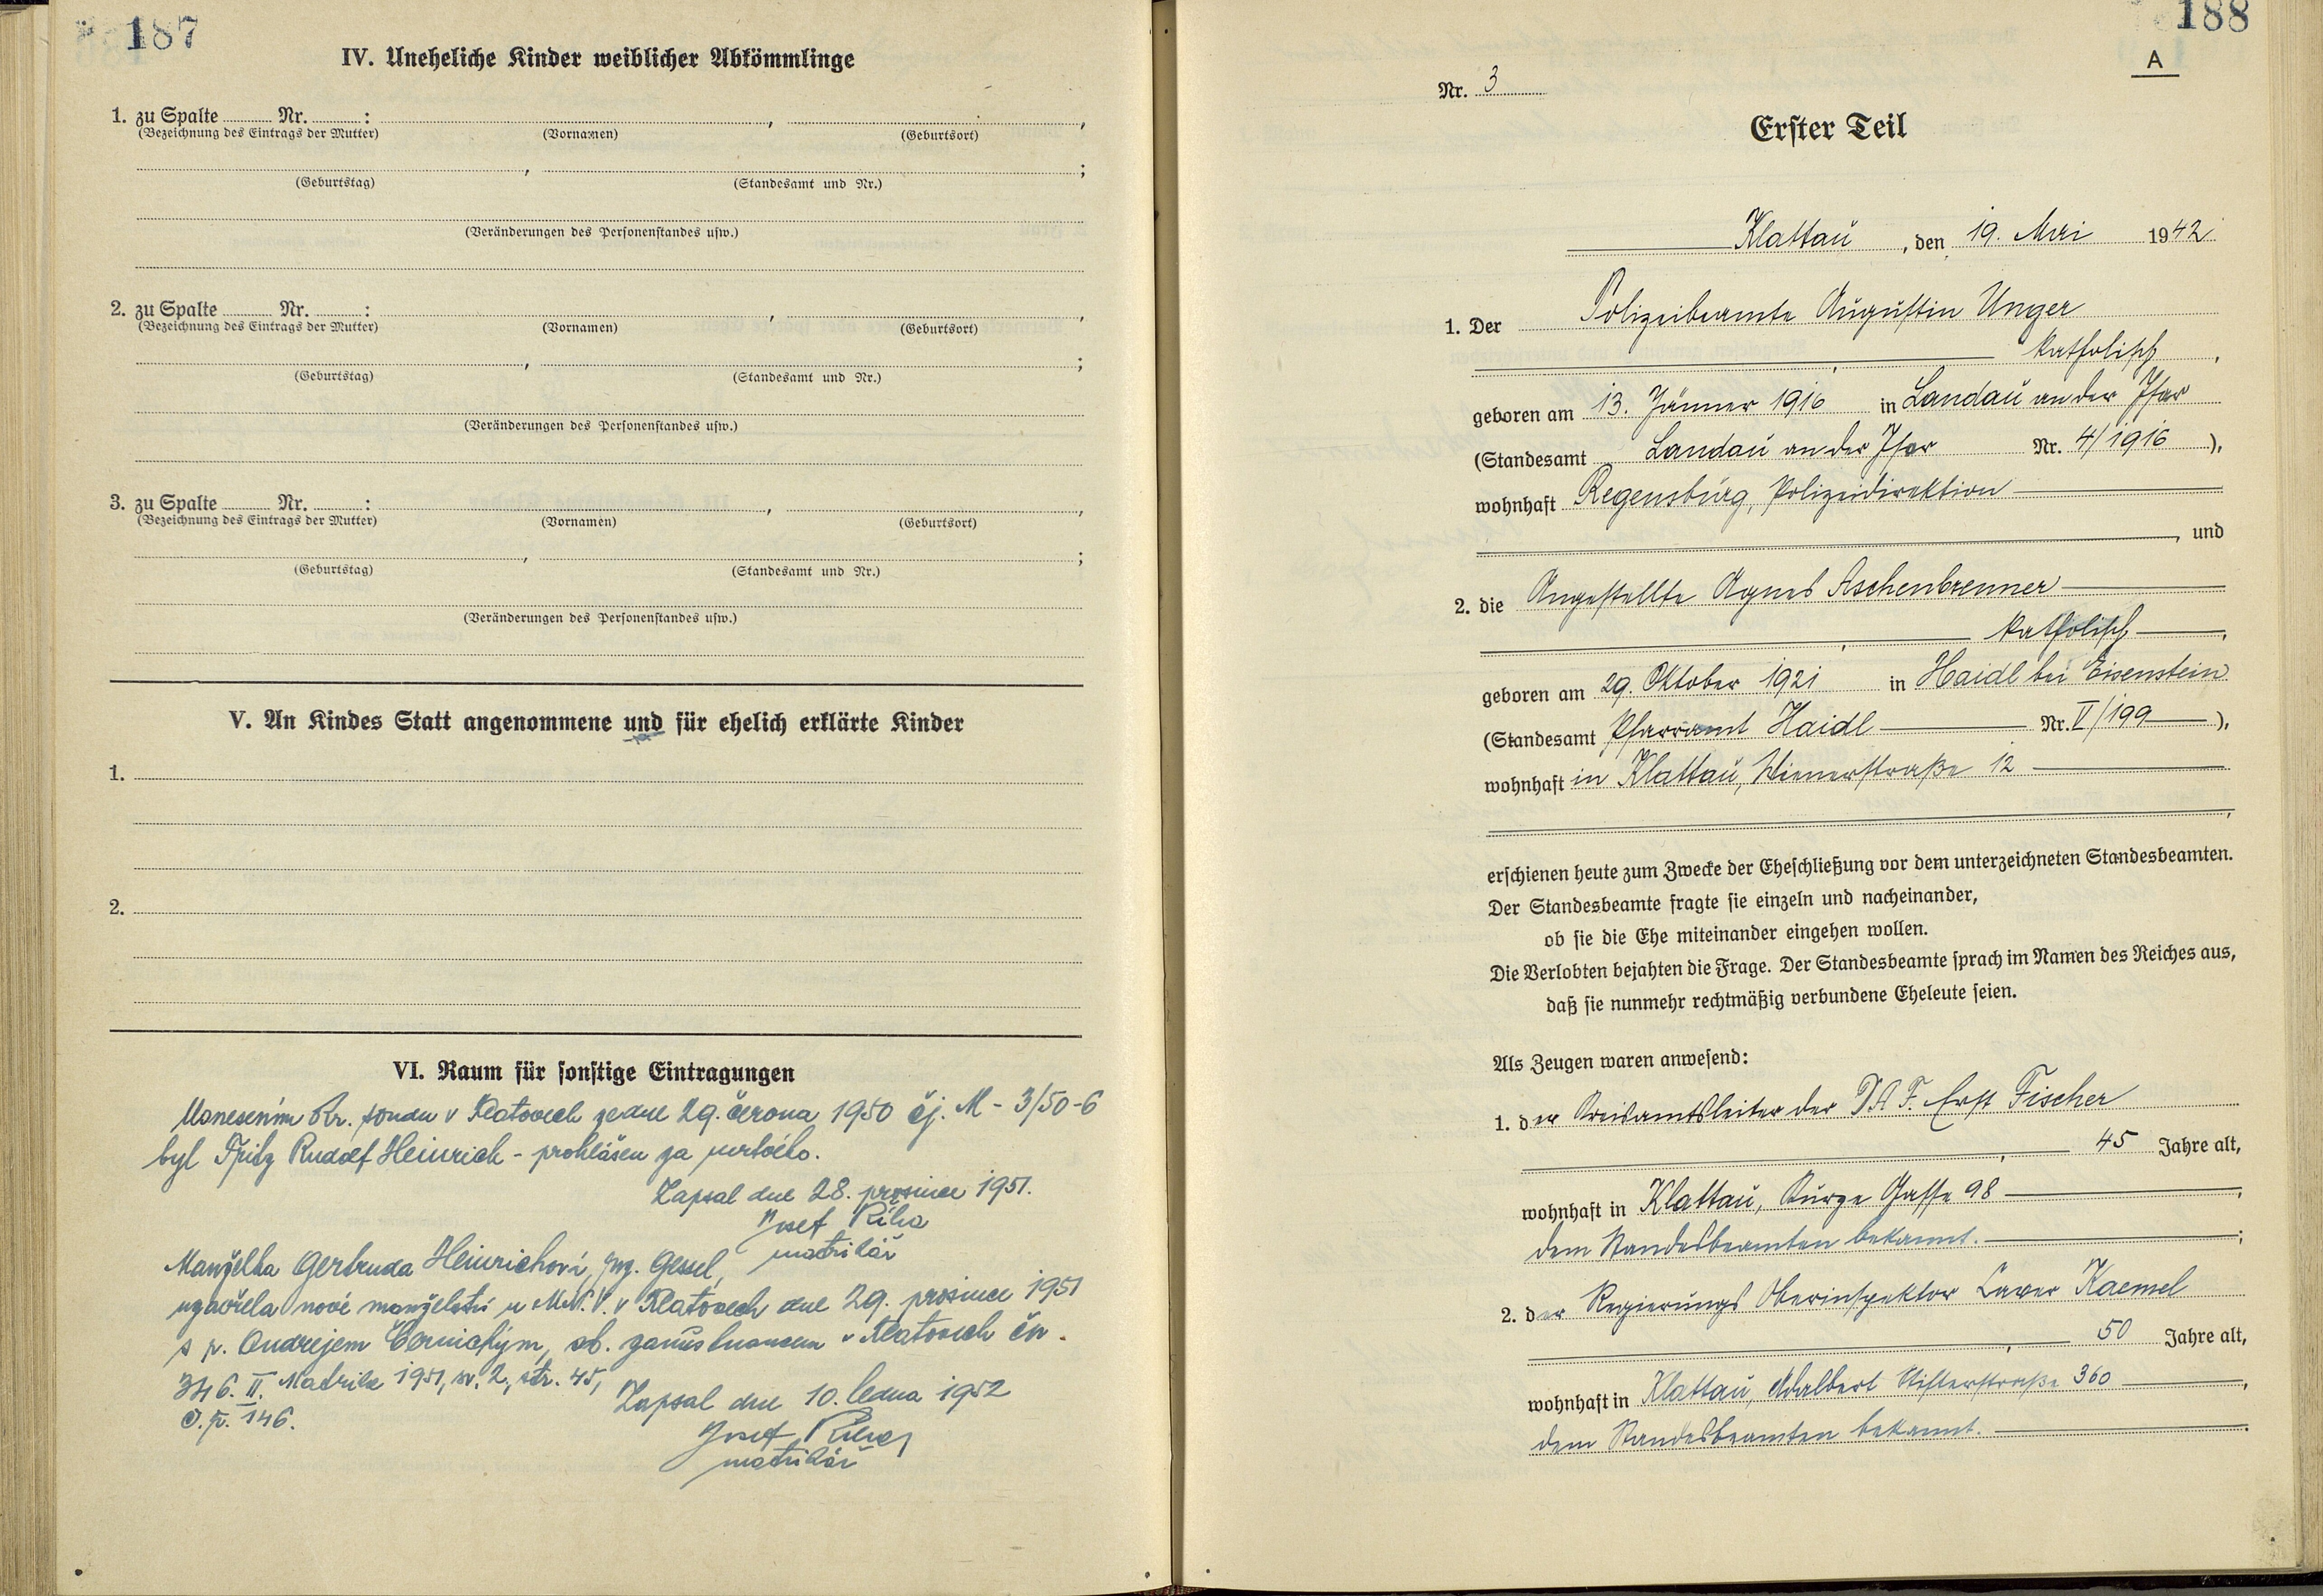 187
IV. Uneheliche Kinder weiblicher Abkömmlinge
1. zu Spalte Nr. : , ,
(Bezeichnung des Eintrags der Mutter) (Vornamen) (Geburtsort)
, ;
(Geburtstag) (Standesamt und Nr.)
(Veränderungen des Personenstandes usw.)
2. zu Spalte Nr. : , ,
(Bezeichnung des Eintrags der Mutter) (Vornamen) (Geburtsort)
, ;
(Geburtstag) (Standesamt und Nr.)
(Veränderungen des Personenstandes usw.)
3. zu Spalte Nr. : , ,
(Bezeichnung des Eintrags der Mutter) (Vornamen) (Geburtsort)
, ;
(Geburtstag) (Standesamt und Nr.)
(Veränderungen des Personenstandes usw.)
V. An Kindes Statt angenommene und für ehelich erklärte Kinder
1.
2.
VI. Raum für sonstige Eintragungen
Usnesením Kr. soudu v Klatovech ze dne 29. června 1950 čj. M - 3/50-6
byl Fritz Rudolf Heinrich - prohlášen za mrtvého.
Zapsal dne 28. prosince 1951.
Josef Říha
matrikář
Manželka Gertruda Heinrichová, roz. Gessel,
uzavřela nové manželství u M.N.V. v Klatovech dne 29. prosince 1951
s p. Ondrejem Černickým, ob. zaměstnancem v Klatovech čp.
346. II. Matrika 1951, sv. 2., str. 45,
č. p. 146.
Zapsal dne 10. ledna 1952
Josef Říha
matrikář
188
A
Nr. 3
Erster Teil
Klattau, den 19. Mai 1942
1. Der Polizeibeamte Augustin Unger
, katholisch,
geboren am 13. Jänner 1916 in Landau an der Isar
(Standesamt Landau an der Isar Nr. 4/1916),
wohnhaft Regensburg, Polizeidirektion
, und
2. die Angestellte Agnes Aschenbrenner
, katholisch,
geboren am 29. Oktober 1921 in Haidl bei Eisenstein
(Standesamt Pfarramt Haidl Nr. V/199),
wohnhaft in Klattau, Wienerstraße 12
,
erschienen heute zum Zwecke der Eheschließung vor dem unterzeichneten Standesbeamten.
Der Standesbeamte fragte sie einzeln und nacheinander,
ob sie die Ehe miteinander eingehen wollen.
Die Verlobten bejahten die Frage. Der Standesbeamte sprach im Namen des Reiches aus,
daß sie nunmehr rechtmäßig verbundene Eheleute seien.
Als Zeugen waren anwesend:
1. der Kreisamtsleiter der D.A.F. Ernst Fischer
, 45 Jahre alt,
wohnhaft in Klattau, Kurze Gasse 98,
dem Standesbeamten bekannt. ;
2. der Regierungs Oberinspektor Xaver Kaemel
, 50 Jahre alt,
wohnhaft in Klattau, Adalbert Stifterstraße 360,
dem Standesbeamten bekannt.